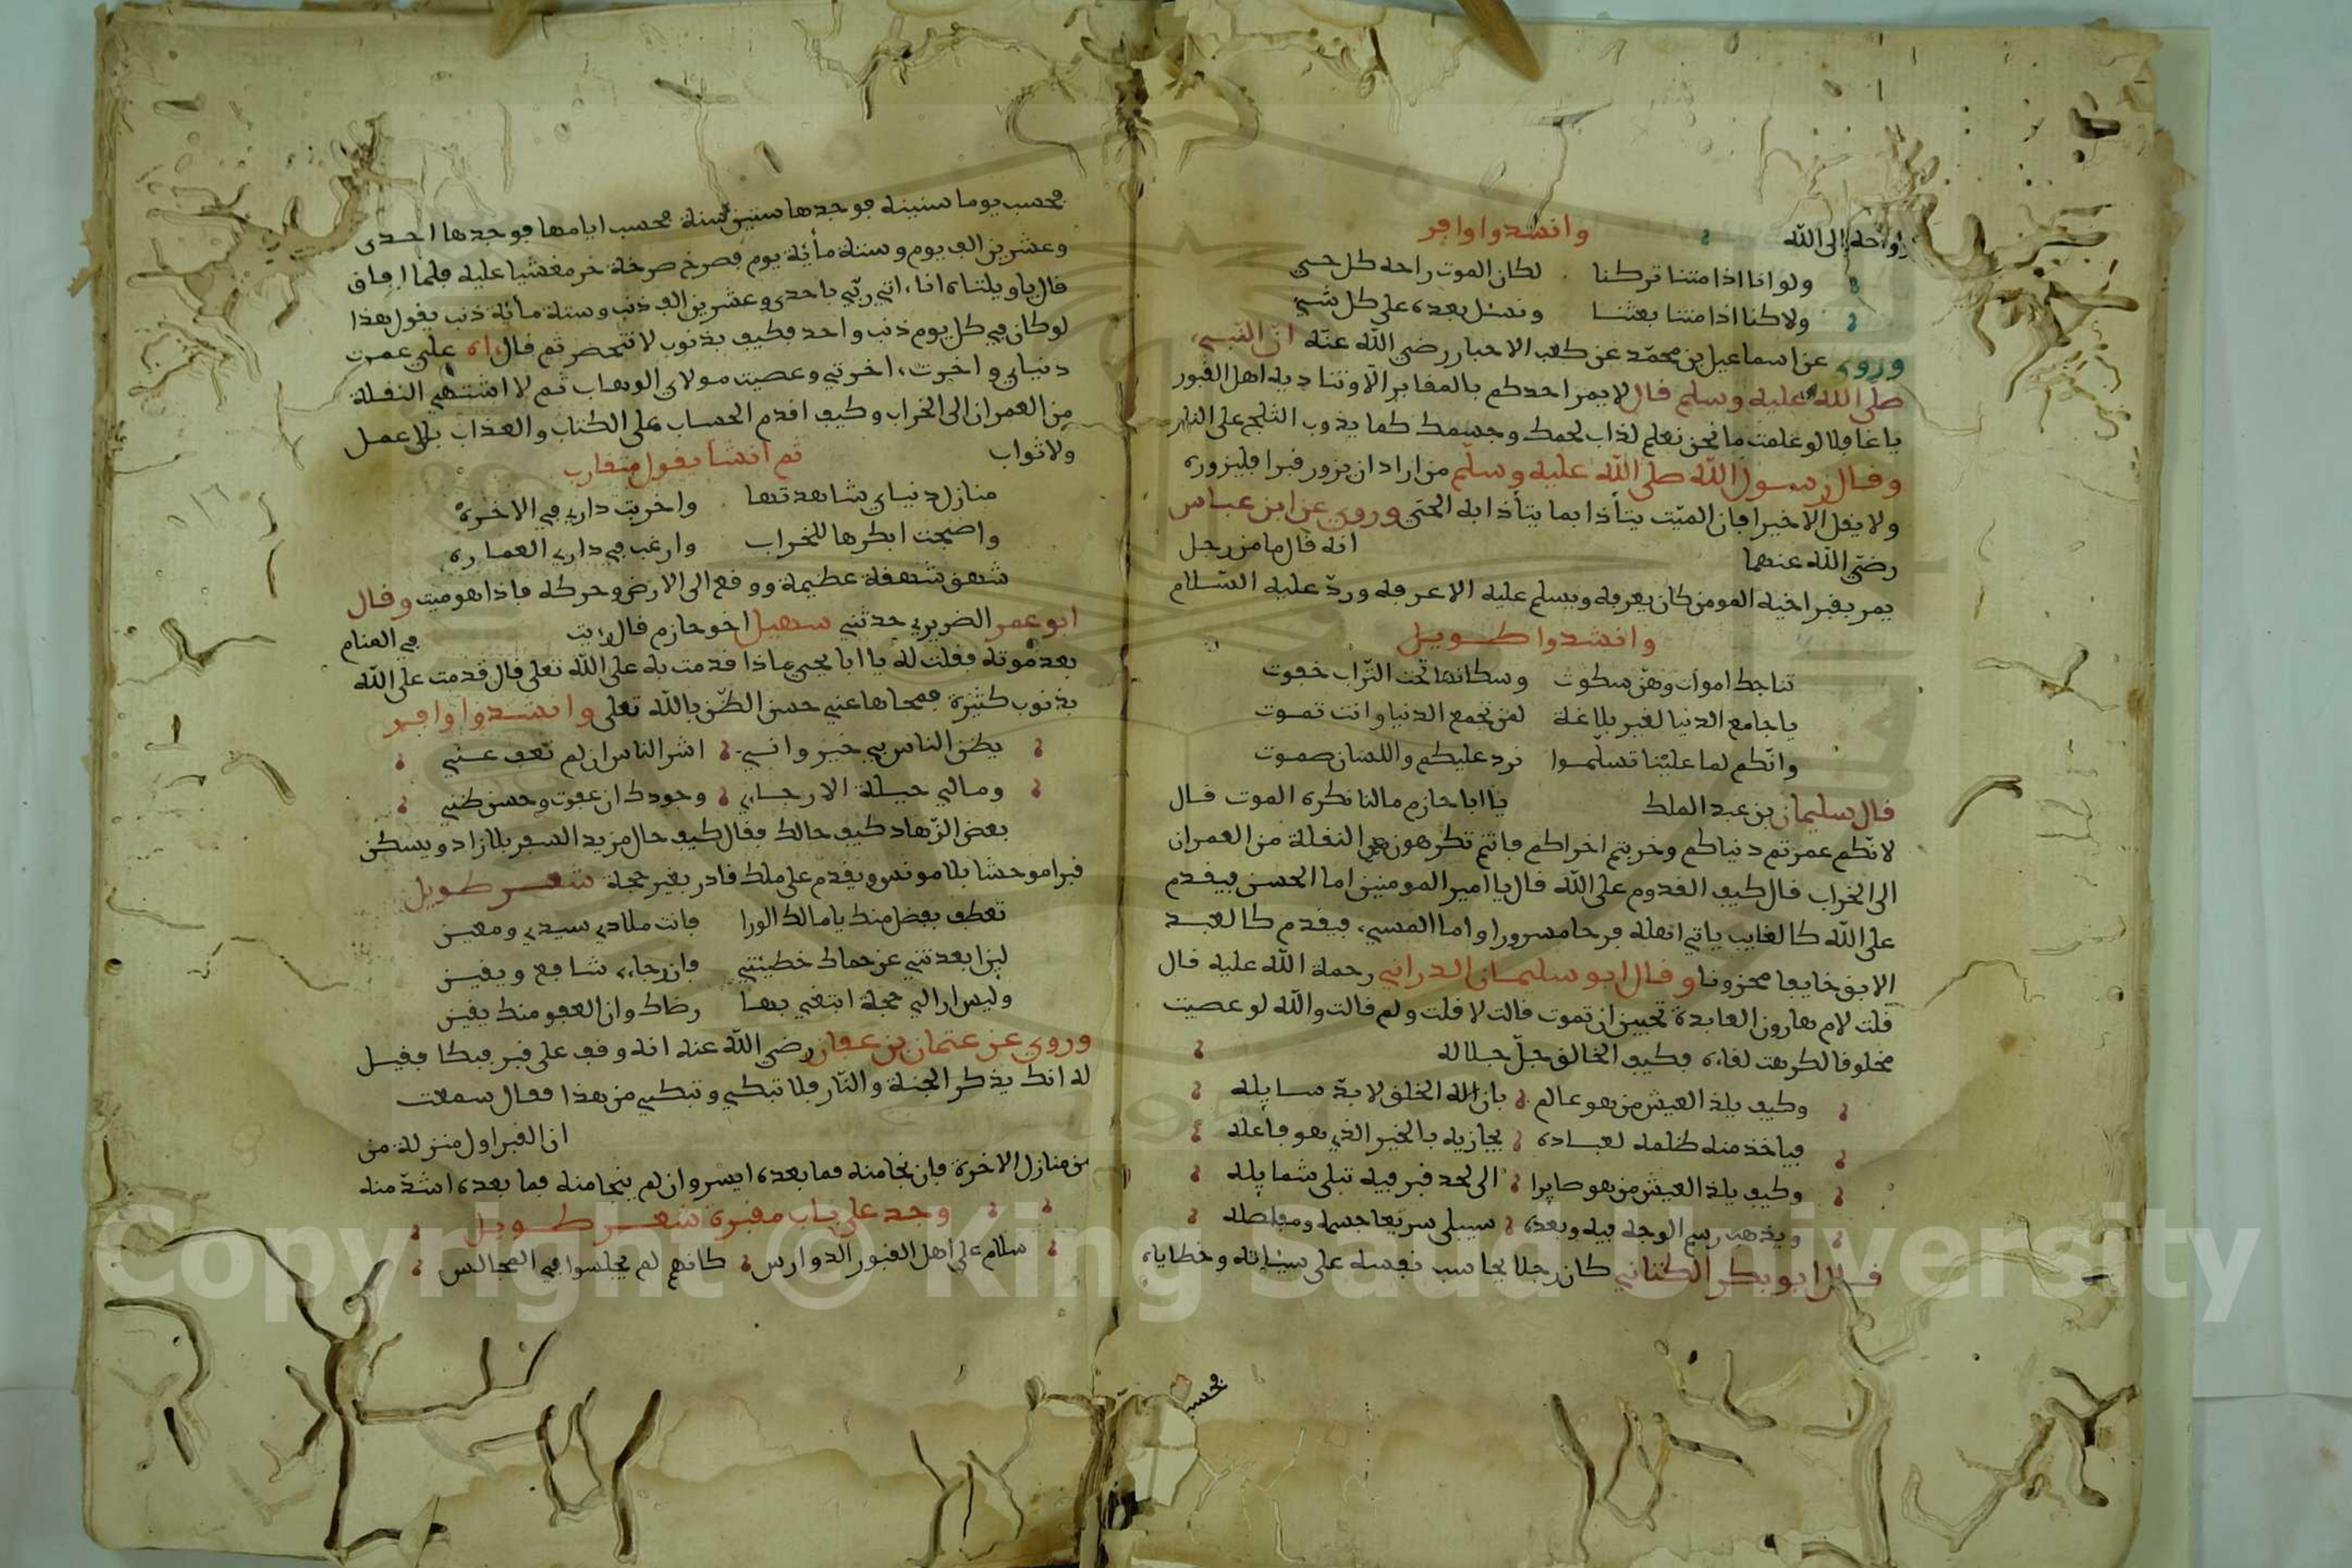 راحة إلى الله وانشدوا وافر
ولو انا اذا متنا تركنا لكان الموت راحة كل حي
ولاكنا اذا متنا بعثنا ونسئل بعده على كل شي
وروى عن اسماعيل بن محمّد عن كعب الاحبار رضي الله عنه ان النبي
صلى الله عليه وسلم قال لا يمر احدكم بالمقابر الا وتناديه اهل القبور
يا غافلا لو علمت ما نحن نعلم لذاب لحمك وجسمك كما يذوب الثلج على النار
وقال رسول الله صلى الله عليه وسلم من اراد ان يزور قبرا فليزوره
ولا يقل الا خيرا فان الميّت يتأذا بما يتأذا به الحي وروي عن ابن عباس
رضي الله عنهما انه قال ما من رجل
يمر بقبر اخيه المومن كان يعرفه ويسلم عليه الا عرفه وردّ عليه السّلام
وانشدوا طويل
تناجك اموات وهنّ سكوت وسكانها تحت التّراب خفوت
يا جامع الدنيا لغير بلاغة لمن تجمع الدنيا وانت تموت
وانّكم لما علينا تسلّموا نرد عليكم واللسان صموت
قال سليمان بن عبد الملك يا ابا حازم مالنا نكره الموت قال
لانّكم عمرتم دنياكم وخربتم اخراكم فانتم تكرهون النقلة من العمران
الى الخراب قال كيف القدوم على الله قال يا امير المومنين اما الحسن فيقدم
على الله كالغايب ياتي اهله فرحا مسرورا واما المسيء فيقدم كالعبد
الابق خايفا محزونا وقال ابو سليمان الدراني رحمة الله عليه قال
قلت لام هارون العابدة تحبين ان تموت قالت لا قلت ولم قالت والله لو عصيت
مخلوقا لكرهت لقاءه فكيف الخالق جلّ جلاله
وكيف يلذ العيش من هو عالم بان اله الخلق لا بدّ سايله
فياخذ منه ظلمه لعباده يجازيه بالخير الذي هو فاعله
وكيف يلذ العيش من هو صايرا الى لحد قبر فيه تبلى شمايله
ويذهب رسم الوجه فيه وبعده سيبلى سريعا جسمه ومفاصله
قال ابو بكر الكناني كان رجلا يحاسب نفسه على سيئاته وخطاياه
فحسب
فحسب يوما سنينه فوجدها ستين سنة فحسب ايامها فوجدها احدى
وعشرين الف يوم وستة مائة يوم فصرخ صرخة خر مغشيا عليه فلما افاق
قال يا ويلتاه انا اتي ربّي باحدى وعشرين الف ذنب وستة مائة ذنب يقول هذا
لو كان في كل يوم ذنب واحد فكيف بذنوب لا تنحصر ثم قال اه علي عمرت
دنياي واخربت اخرتي وعصيت مولاي الوهاب ثم لا اشتهي النقلة
من العمران الى الخراب وكيف اقدم الحساب على الكتاب والعذاب بلا عمل
ولا ثواب ثم انشا يقول متقارب
منازل دنياي شاهدتها واخربت داري في الاخرة
واصبحت ابكرها للخراب وارغب في داري العمارة
شهق شهقة عظيمة ووقع الى الارض وحركه فاذا هو ميت وقال
ابو عمر الضريري حدثني سهيل اخو حازم قال رايت في المنام
بعد موته فقلت له يا ابا يحيى ماذا قدمت به على الله تعلى قال قدمت على الله
بذنوب كثيرة فمحاها عني حسن الظّن بالله تعلى وانشدوا وافر
يظن الناس بي خير وانّي اشر الناس ان لم تعف عنّي
ومالي حيلة الا رجائي وجودك ان عفوت وحسن ظني
بعض الزّهاد كيف حالك فقال كيف حال من يريد السفر بلا زاد ويسكن
قبرا موحشا بلا مونس ويقدم على ملك قادر بغير حجة شعر طويل
تعطف بفضل منك يا مالك الورا فانت ملاذي سيدي ومعين
لين ابعدتني عن حماك خطيئتي فان رجاي شافع ويقين
وليس ارا لي حجة ابتغي بها رضاك وان العفو منك يقين
وروي عن عثمان بن عفان رضي الله عنه انه وقف على قبر فبكا فقيل
له انك يذكر الجنة والنّار فلا تبكي وتبكي من هذا فقال سمعت
ان القبر اول منزلة من
من منازل الاخرة فان نجا منه فما بعده ايسر وان لم ينجا منه فما بعده اشدّ منه
وجد على باب مقبرة شعر طويل
سلام على اهل القبور الدوارس كانهم لم يجلسوا في المجالس
Copyright © King Saud University